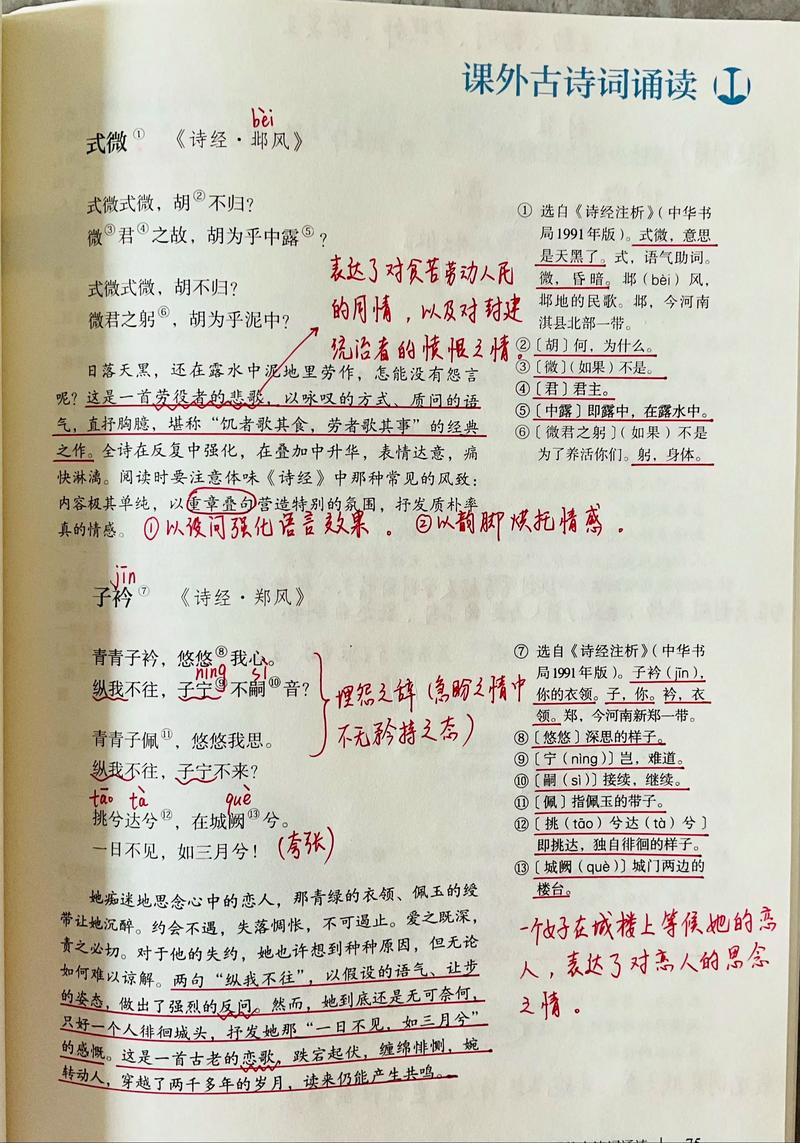 课外古诗词诵读
bèi
式微① 《诗经·邶风》
式微式微，胡②不归？
微③君④之故，胡为乎中露⑤？
式微式微，胡不归？
微君之躬⑥，胡为乎泥中？
表达了对贫苦劳动人民
的同情，以及对封建
统治者的愤恨之情。
日落天黑，还在露水中泥地里劳作，怎能没有怨言
呢？这是一首劳役者的悲歌，以咏叹的方式、质问的语
气，直抒胸臆，堪称“饥者歌其食，劳者歌其事”的经典
之作。全诗在反复中强化，在叠加中升华，表情达意，痛
快淋漓。阅读时要注意体味《诗经》中那种常见的风致：
内容极其单纯，以重章叠句营造特别的氛围，抒发质朴率
真的情感。
①以设问强化语言效果。②以韵脚烘托情感。
① 选自《诗经注析》（中华书
局1991年版）。式微，意思
是天黑了。式，语气助词。
微，昏暗。邶（bèi）风，
邶地的民歌。邶，今河南
淇县北部一带。
②〔胡〕何，为什么。
③〔微〕（如果）不是。
④〔君〕君主。
⑤〔中露〕即露中，在露水中。
⑥〔微君之躬〕（如果）不是
为了养活你们。躬，身体。
jīn
子衿⑦ 《诗经·郑风》
青青子衿，悠悠⑧我心。
nìng sì
纵我不往，子宁⑨不嗣⑩音？
青青子佩⑪，悠悠我思。
纵我不往，子宁不来？
埋怨之辞（急盼之情中
不无矜持之态）
tāo tà què
挑兮达兮⑫，在城阙⑬兮。
一日不见，如三月兮！（夸张）
她痴迷地思念心中的恋人，那青绿的衣领、佩玉的绶
带让她沉醉。约会不遇，失落惆怅，不可遏止。爱之既深，
责之必切。对于他的失约，她也许想到种种原因，但无论
如何难以谅解。两句“纵我不往”，以假设的语气、让步
的姿态，做出了强烈的反问。然而，她到底还是无可奈何，
只好一个人徘徊城头，抒发她那“一日不见，如三月兮”
的感慨。这是一首古老的恋歌，跌宕起伏，缠绵悱恻，婉
转动人，穿越了两千多年的岁月，读来仍能产生共鸣。
⑦ 选自《诗经注析》（中华书
局1991年版）。子衿（jīn），
你的衣领。子，你。衿，衣
领。郑，今河南新郑一带。
⑧〔悠悠〕深思的样子。
⑨〔宁（nìng）〕岂，难道。
⑩〔嗣（sì）〕接续，继续。
⑪〔佩〕指佩玉的带子。
⑫〔挑（tāo）兮达（tà）兮〕
即挑达，独自徘徊的样子。
⑬〔城阙（què）〕城门两边的
楼台。
一个女子在城楼上等候她的恋
人，表达了对恋人的思念
之情。